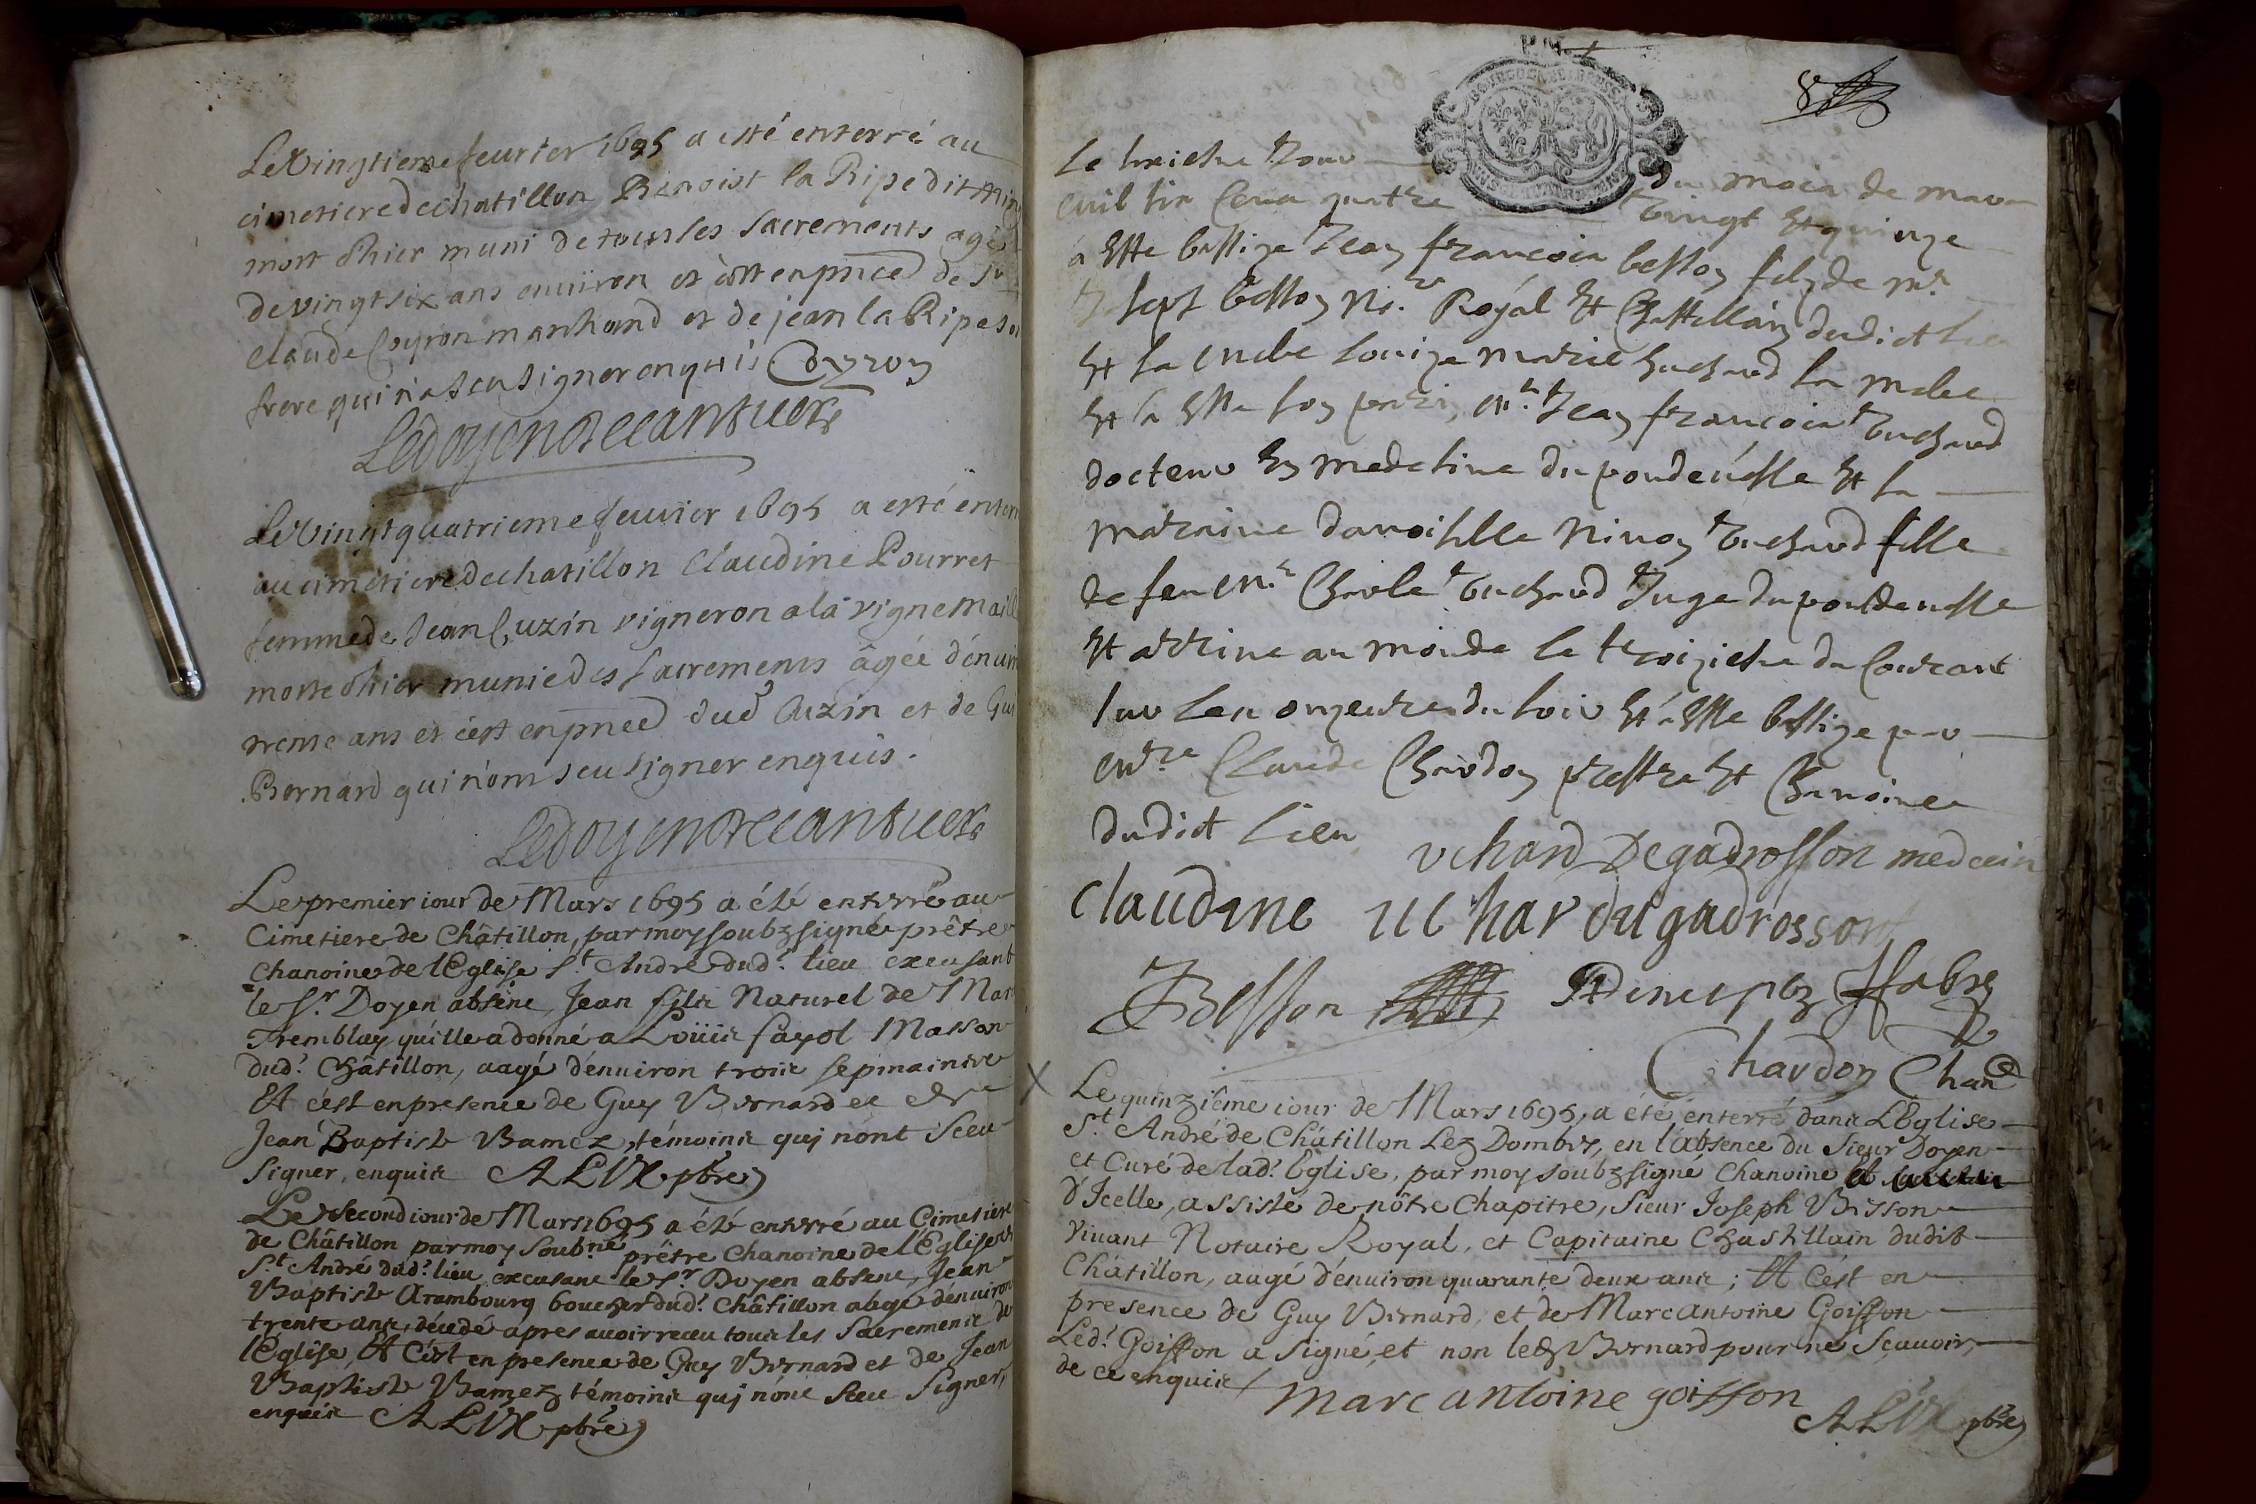 Le Vingtieme feurier 1695 a esté enterré au
cimetiere de chatillon Benoist la Ripe dit
mort d'hier muni de tous les sacrements agé
de vingt six ans enuiron et c'est en pnce de
Claude Coyron marchand et de jean la Ripe son
frere qui n'a sceu signer enquis Coyron
Le doyen
Le Vingt quatrieme feuurier 1695 a esté enterr
au cimetiere de chatillon Claudine Pourret
femme de Jean Cuzin vigneron a la vigne
morte d'hier munie des sacrements âgée d'enuir
trente ans et c'est en pnce dud Cuzin et de Guy
Bernard qui n'ont sceu signer enquis.
Le doyen
Le premier iour de Mars 1695 a été enterré au
Cimetiere de Châtillon, par moy soubzsigné prêtre
Chanoine de l'Eglise St. André dud. lieu excusant
le Sr. Doyen absent, Jean fils Naturel de Mar
Tremblay qu'elle a donné a Loüis fayol Masson
dud. Châtillon, aagé d'enuiron trois sepmaines
Et c'est en presence de Guy Bernard et de
Jean Baptiste Bamez, témoins quj n'ont sceu
signer, enquis ALIX pbre
Le second iour de Mars 1695 a été enterré au Cimetiere
de Châtillon par moy soubné prêtre Chanoine de l'Eglise
St. André dud. lieu excusant le Sr. Doyen absent, Jean
Baptiste Arambourg boucher dud. Châtillon abgé d'enuiron
trente ans, decedé apres auoir receu tous les Sacrements de
l'Eglise, Et C'est en presence de Guy Bernard et de Jean
Baptiste Bamez témoins quj n'ont sceu signer,
enquis ALIX pbre
8
Le treiziesme Jour du mois de mars
mil six Cens quatre vingt et quinze
a esté bastize Jean francois besson filz de mr
Josept besson Nre. Royal et Chastellain dudict lieu
et sa mere louize marie vuchard sa mere
et a esté son parrin mr. Jean francois vuchard
docteur en medesine du pondeuesle et sa
marrine damoiselle Ninon vuchard fille
de feu mr. Charle vuchard Juge du pontdeuesle
et arrive au monde le troiziesme du Courant
sur les onze heures du soir et a esté bastize par
mre Claude Chardon prestre et Chanoine
dudict lieu uchard Degadrosson medecin
claudine uchar du gadrosson
JBesson Fabre
Chardon Chane
X
Le quinzième iour de Mars 1695, a été enterré dans L'Eglise
St. André de Châtillon Lez Dombes, en l'absence du Sieur Doyen
et Curé de lad. Eglise, par moy soubzsigné Chanoine
d'Icelle, assisté de nôtre Chapitre, Sieur Joseph Bisson
viuant Notaire Royal, et Capitaine Chastillain dudit
Châtillon, aagé d'enuiron quarante deux ans; Et C'est en
presence de Guy Bernard, et de Marc antoine Goiffon
Led. Goiffon a signé, et non led Bernard pour ne Scauoir,
de ce enquis marc antoine goiffon
ALIX pbre